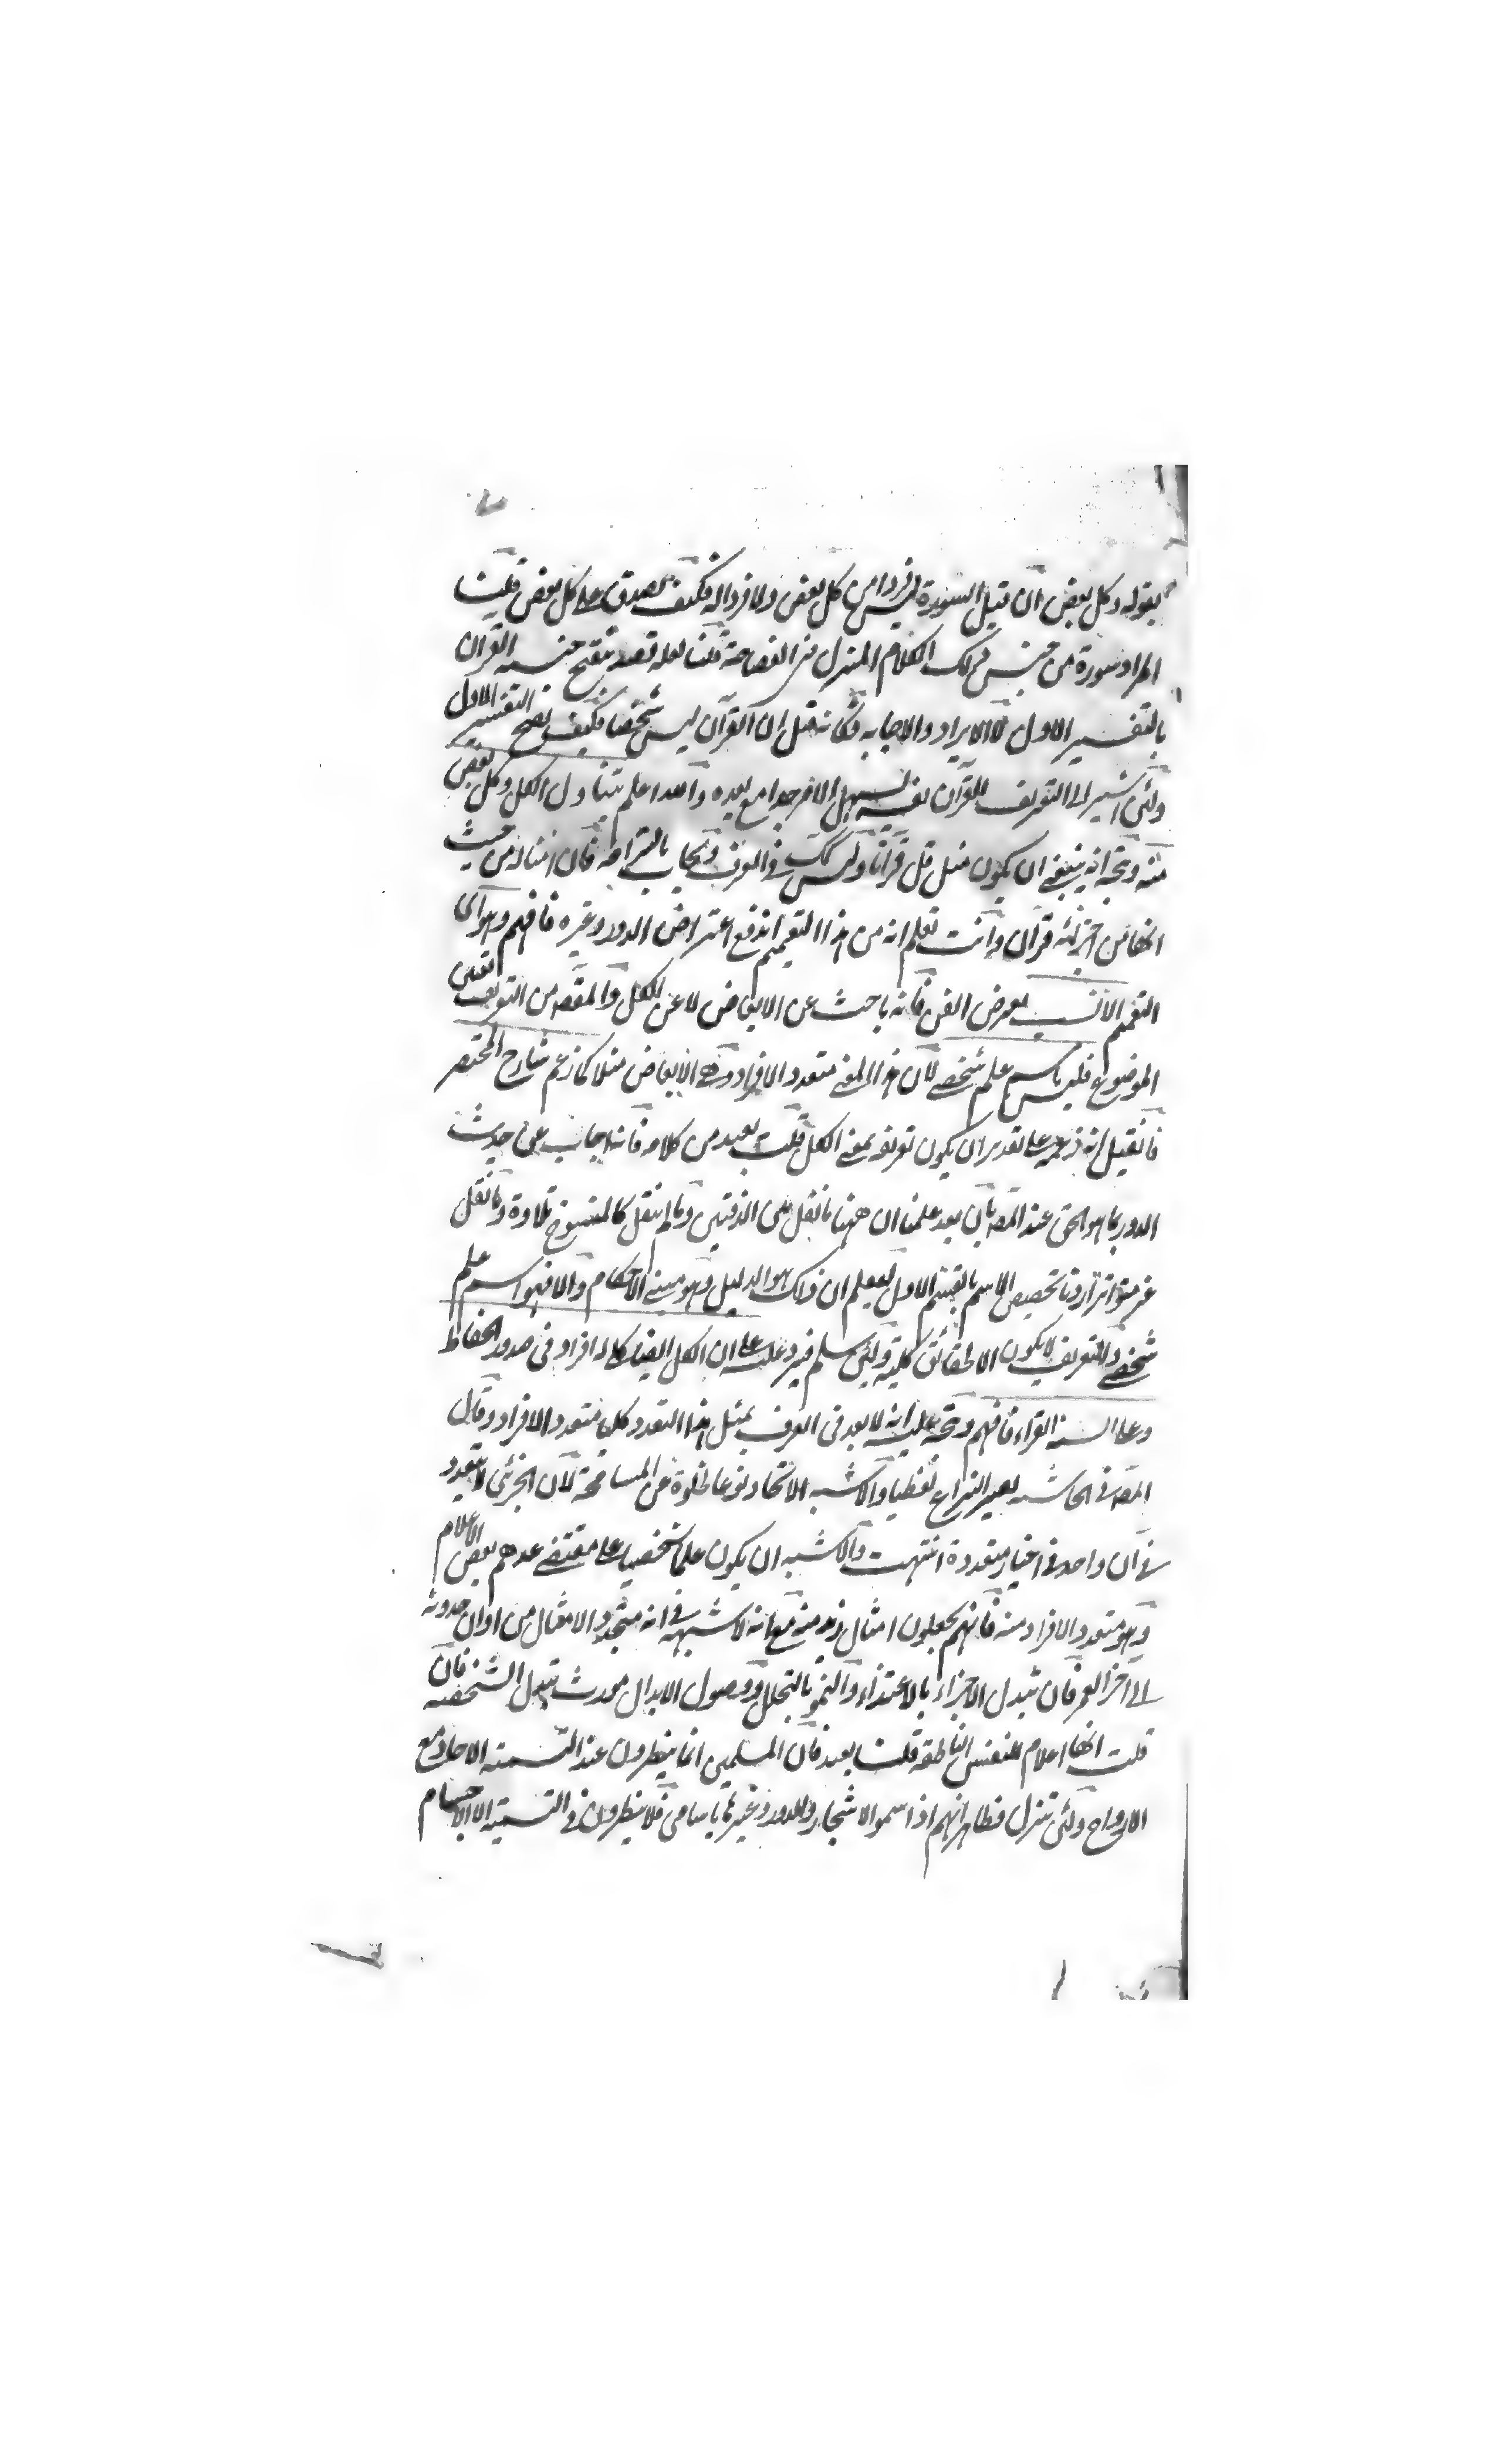 بقوله وكل بعض ان قيل السورة ليس فردا من كل بعض ولا فردا له فكيف يصدق على كل بعض قلت
المراد سورة من جنس ذلك الكلام المنزل في الفصاحة قلنا لعله قصد تنقيح جنسه القرآن
بالتفسير الاول لا الايراد والاجابه فكانه قيل ان القرآن ليس شخصا فكيف يصح التفسير الاول
ولئن اشير الى التعريف للقرآن نفسه لسهل الامر جدا مع بعده والله اعلم يتناول الكل وكل بعض
منه ويتجه انه ينبغي ان يكون مثل قل قرآنا وليس كك في العرف ويجاب بالتزامه فان امثاله من حيث
انها من اجزائه قرآن وانت تعلم انه من هذا التعميم اندفع اعتراض الدور وغيره فافهم وهو اى
التعميم الانسب بغرض الفن فانه باحث عن الابعاض لا عن الكل والمقصد من التعريف تعين
الموضوع فليس باسم علم شخصي لان هذا المعنى متعدد الافراد وهي الابعاض مثلا كما زعم شارح المختصر
فانقيل انه زعمه على تقدير ان يكون تعريفه بمعنى الكل قلت بعيد من كلامه فانه اجاب عن حديث
الدور بما هو الحق عند المصه بان بعد علمنا ان ههنا ما نقل بين الدفتين وما لم ينقل كالمنسوخ تلاوة وما نقل
غير متواتر اردنا تخصيص الاسم بالقسم الاول ليعلم ان ذلك هو الدليل وهو مبنى الاحكام والا فهو اسم علم
شخصي والتعريف لا يكون الا لحقائق كلية ولئن سلم فيرد عليه على ان الكل ايضا كله افراد في صدور الحفاظ
وعلى السنة القراء فافهم ويتجه عليه انه لا يعد في العرف بمثل هذا التعدد كليا متعدد الافراد وقال
المصه في الحاشيه يصير النزاع لفظيا والاشبه الاتحاد نوعا لخلوه عن المسامحة لان الجزئي لا يتعدد
في آن واحد في احياز متعددة انتهت والاشبه ان يكون علما شخصيا على مقتضى عدهم بعض الاعلام
وهو متعدد الافراد منه فانهم يجعلون امثال زيد منه مع انه لا شبهة في انه متجدد الامثال من اوان حدوثه
الى اخر العمر فان تبدل الاجزاء بالاغتذاء والنمو بالتحلل ووصول الابدال مورث تبدل الشخصيه فان
قلت انها اعلام للنفس الناطقة قلت بعيد فان المسلمين انما ينظرون عند التسمية الاجساد مع
الارواح ولئن تنزل فظاهر انهم اذا سموا الاشجار والدور وغيرها باسامى فلا ينظرون في التسمية الا الاجسام